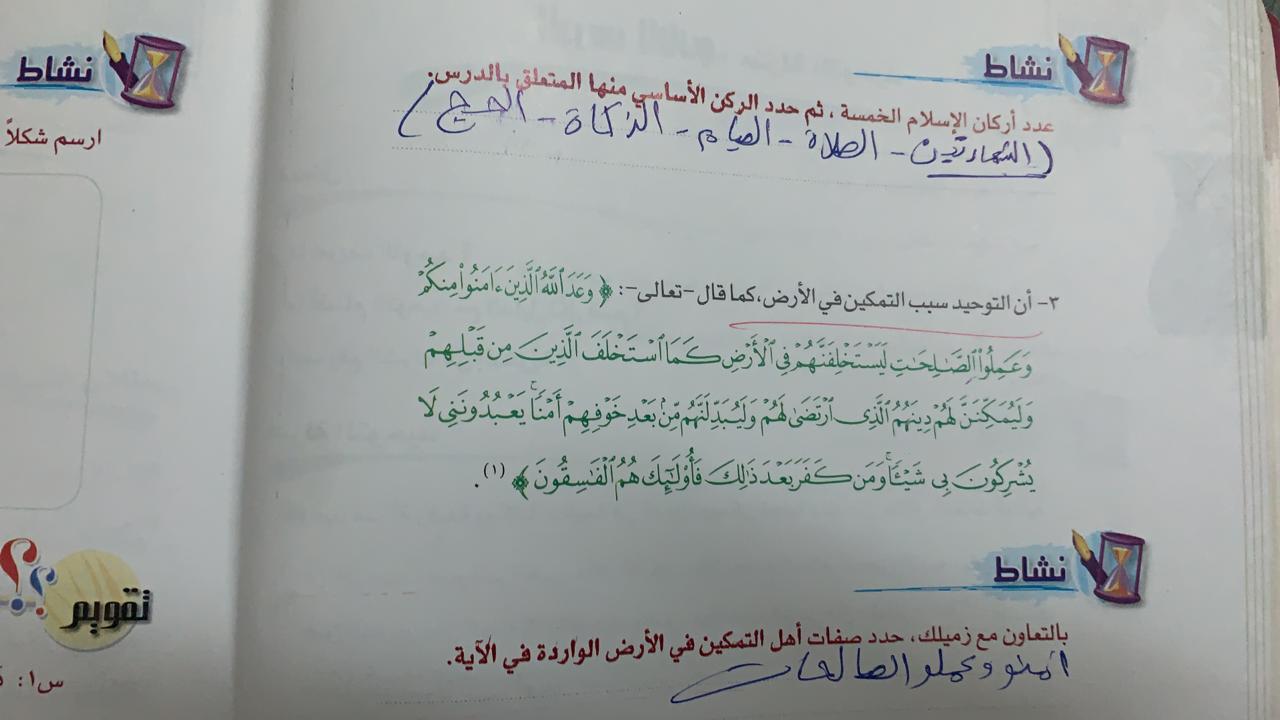 نشاط
عدد أركان الإسلام الخمسة ، ثم حدد الركن الأساسي منها المتعلق بالدرس.
(الشهادتين - الصلاة - الصيام - الزكاة - الحج)
٣- أن التوحيد سبب التمكين في الأرض، كما قال -تعالى-: ﴿ وَعَدَ ٱللَّهُ ٱلَّذِينَ ءَامَنُوا۟ مِنكُمْ
وَعَمِلُوا۟ ٱلصَّـٰلِحَـٰتِ لَيَسْتَخْلِفَنَّهُمْ فِى ٱلْأَرْضِ كَمَا ٱسْتَخْلَفَ ٱلَّذِينَ مِن قَبْلِهِمْ
وَلَيُمَكِّنَنَّ لَهُمْ دِينَهُمُ ٱلَّذِى ٱرْتَضَىٰ لَهُمْ وَلَيُبَدِّلَنَّهُم مِّنۢ بَعْدِ خَوْفِهِمْ أَمْنًا ۚ يَعْبُدُونَنِى لَا
يُشْرِكُونَ بِى شَيْـًٔا ۚ وَمَن كَفَرَ بَعْدَ ذَٰلِكَ فَأُو۟لَـٰٓئِكَ هُمُ ٱلْفَـٰسِقُونَ ﴾ (١).
نشاط
بالتعاون مع زميلك، حدد صفات أهل التمكين في الأرض الواردة في الآية.
امنو وعملو الصالحات
نشاط
ارسم شكلاً
تقويم
س١: